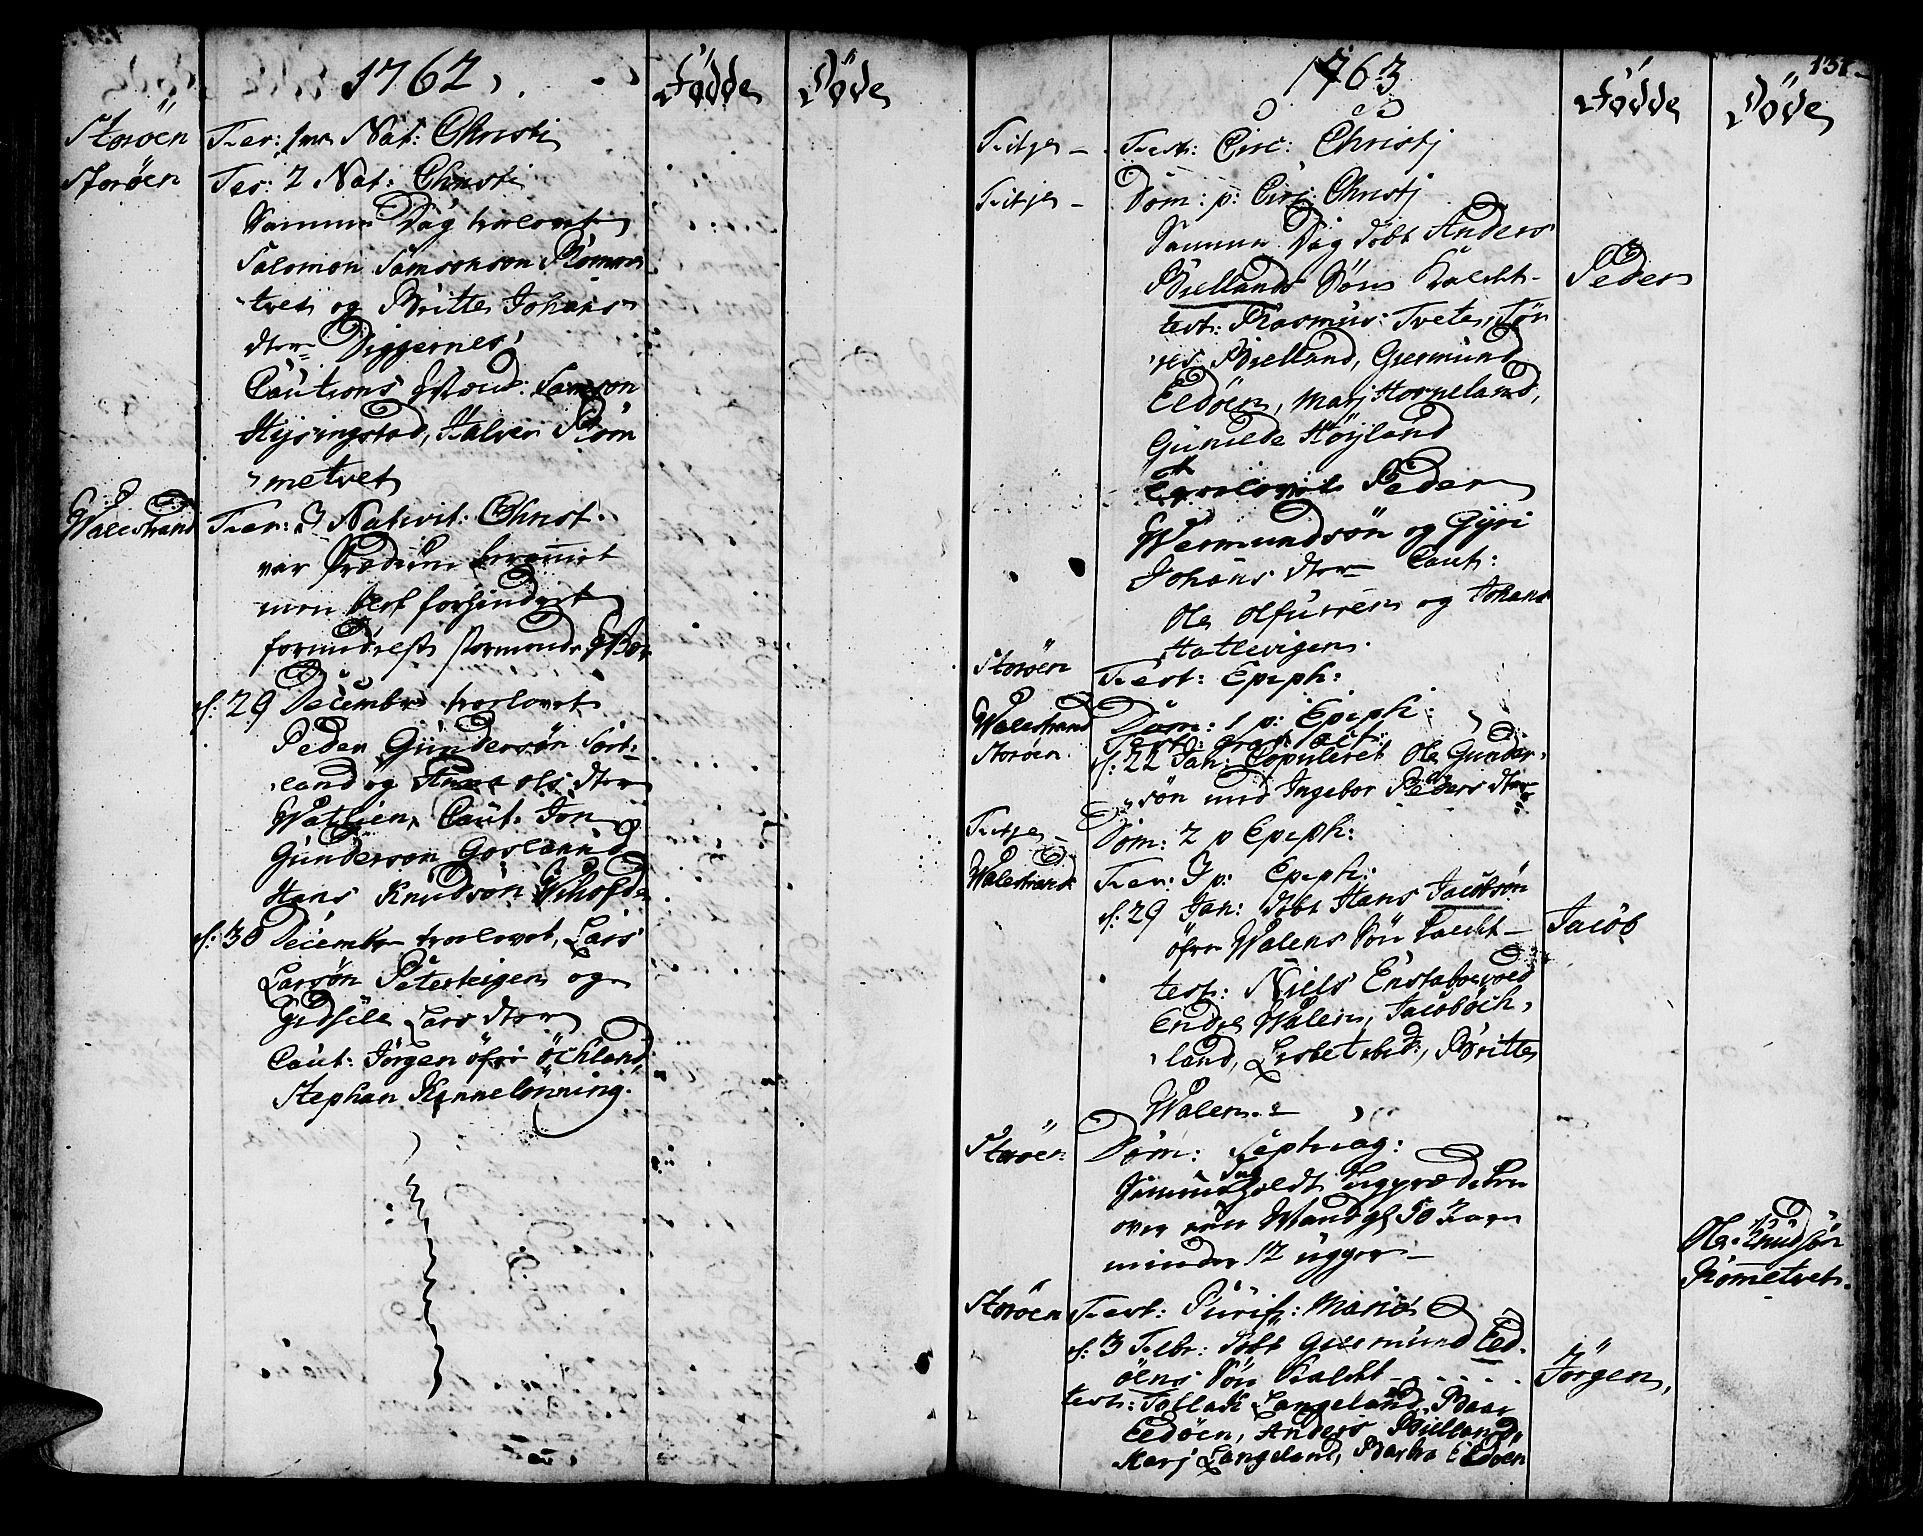 1762.
Födde
Döde
Storöen Fer: 1ma Nat: Christi
Storöen Fer: 2 Nat: Christi
Samme Dag trolovet
Salomon Samsonson Römme
tvet og Britte Johans
dter Diggernes,
Cautions Mænd: Samson
Hysingstad, Halver Röm
metvet
Walestrand Fer: 3 Nativit: Christ:
var Prædiken berammet
men blef forhindret
formedelst stormende
d: 29 Decembr trolovet
Peder Gundersön Sort-
land og Anna Ols dter
Watleen, Caut: Jon
Gunderson Gosland
Hans Knudsön
d: 30 Decembr trolovet, Lars
Larsön Petersteigen og
Gidsele Lars dter
Caut: Jörgen öfre Öchland
Stephan Kinnelönning.
1763
Födde
Döde
131
Fitje Fest: Circ: Christj
Fitje Dom: p: Circ: Christj
Samme Dag döbt Anders
Bielland Sön kaldt Peder
test: Rasmus Tvete, Jör
Bielland, Giermund
Eldöen, Marj Horneland,
Gunilde Höyland
Trolovet Peder
Wermundsön og Gyri
Johans dter Caut:
Ole Olfursen og Johans
Hatlevigen.
Storöen Fest: Epiph:
Walestrand Dom: 1 p: Epiph:
Storöen Fest:
d: 22 Jan: Copuleret Ole Gunder
sön med Ingebor Peders dter
Fitje Dom: 2 p Epiph:
Walestrand Fer: 3 p: Epiph:
d: 29 Jan: döbt Hans Jacobsön
öfre Walens Sön kaldt Jacob
test: Niels Enstabøevold
Endre Walen, Jacob Öch
land, Lisbet ibid:, Britte
Walen
Storöen Dom: Septuag:
Samme Dag holdt Liigprædiken
over een Mand gl 50 Aar
minder 12 uger
Ole Knudsön
Römmetvet.
Storöen Fest: Purif: Mariæ
d: 3 Febr: döbt Giermund Eld-
öens Sön kaldt Jörgen,
test: Tollak Langeland, Baar
Eldöen, Anders Bielland,
Marj Langeland, Barbra Eldöen